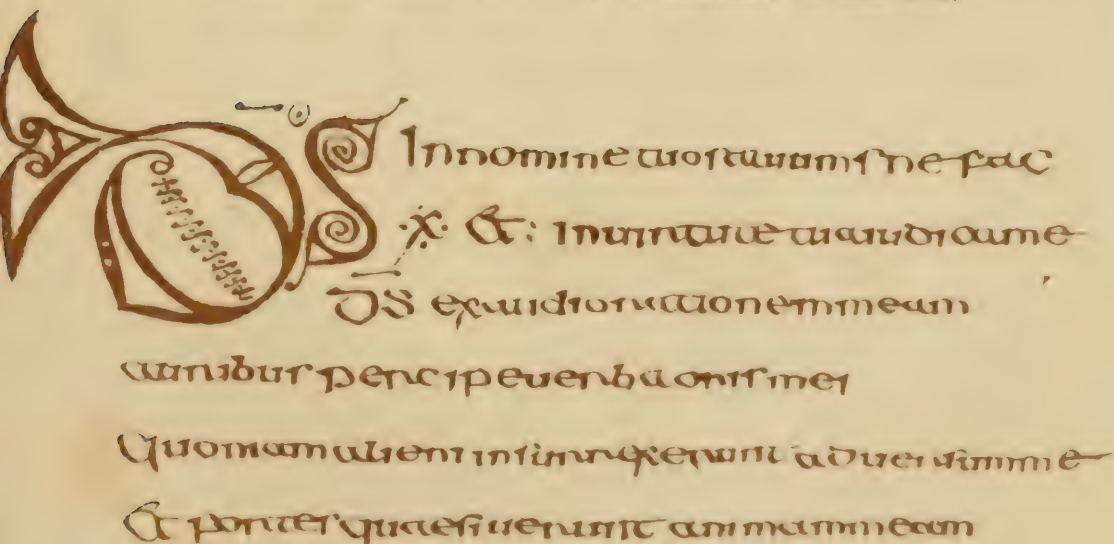 DS In nomine tuo saluum me fac
·X· Et: In uirtute tua iudica me
DS exaudi orationem meam
auribus percipe uerba oris mei
Quoniam alieni insurrexerunt aduersum me
Et fortes quaesiuerunt animam meam